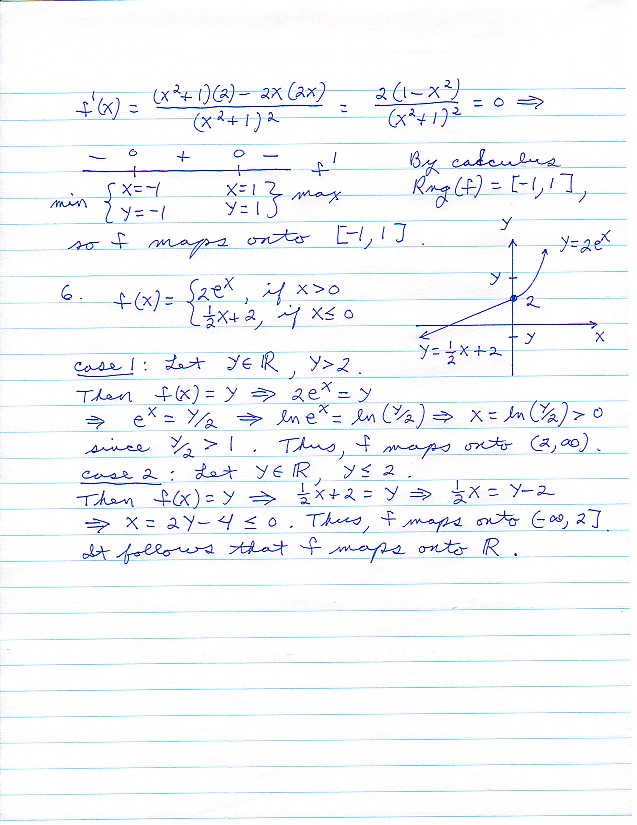 f'(x) = ((x²+1)(2) - 2x(2x))/(x²+1)² = 2(1-x²)/(x²+1)² = 0 ⇒
- 0 + 0 - f'
By calculus
min { x=-1 x=1 } max Rng(f) = [-1,1],
y=-1 y=1
so f maps onto [-1,1].
y
y=2eˣ
y
2
6. f(x) = { 2eˣ, if x>0
½x+2, if x≤0
y x
y=½x+2
case 1: Let y∈ℝ, y>2.
Then f(x)=y ⇒ 2eˣ=y
⇒ eˣ=y/2 ⇒ ln eˣ = ln(y/2) ⇒ x = ln(y/2) > 0
since y/2 > 1. Thus, f maps onto (2,∞).
case 2: Let y∈ℝ, y≤2.
Then f(x)=y ⇒ ½x+2 = y ⇒ ½x = y-2
⇒ x = 2y-4 ≤ 0. Thus, f maps onto (-∞,2].
It follows that f maps onto ℝ.